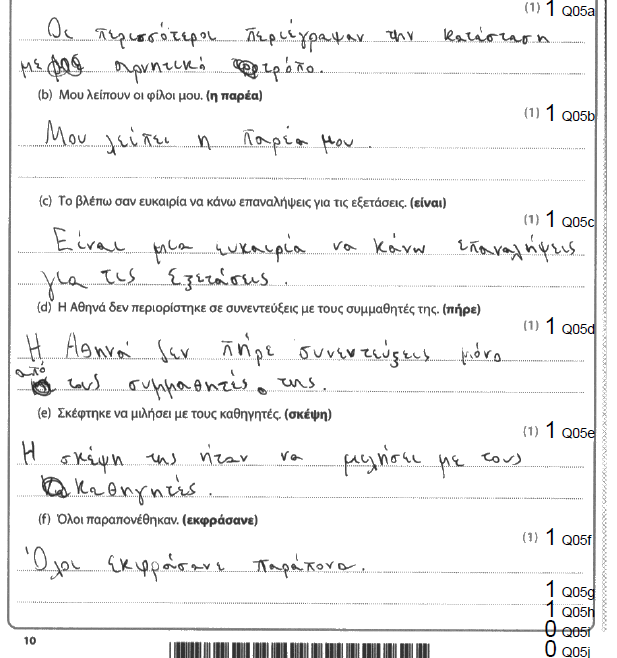 (1) 1 Q05a
Οι περισσότεροι περιέγραψαν την κατάσταση
με αρνητικό τρόπο.
(b) Μου λείπουν οι φίλοι μου. (η παρέα)
(1) 1 Q05b
Μου λείπει η παρέα μου.
(c) Το βλέπω σαν ευκαιρία να κάνω επαναλήψεις για τις εξετάσεις. (είναι)
(1) 1 Q05c
Είναι μια ευκαιρία να κάνω επαναλήψεις
για τις εξετάσεις.
(d) Η Αθηνά δεν περιορίστηκε σε συνεντεύξεις με τους συμμαθητές της. (πήρε)
(1) 1 Q05d
Η Αθηνά δεν πήρε συνεντεύξεις μόνο
από τους συμμαθητές της.
(e) Σκέφτηκε να μιλήσει με τους καθηγητές. (σκέψη)
(1) 1 Q05e
Η σκέψη της ήταν να μιλήσει με τους
καθηγητές.
(f) Όλοι παραπονέθηκαν. (εκφράσανε)
(1) 1 Q05f
Όλοι εκφράσανε παράπονα.
1 Q05g
1 Q05h
0 Q05i
0 Q05j
10